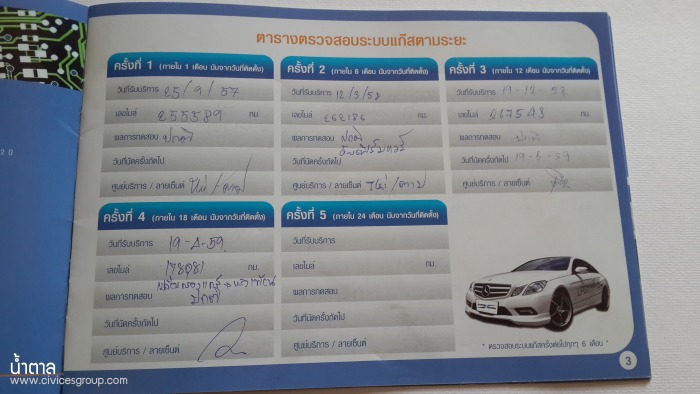 ตารางตรวจสอบระบบแก๊สตามระยะ
ครั้งที่ 1 (ภายใน 1 เดือน นับจากวันที่ติดตั้ง)
วันที่รับบริการ 25/9/57
เลขไมล์ 255589 กม.
ผลการทดสอบ ปกติ
วันที่นัดครั้งถัดไป
ศูนย์บริการ / ลายเซ็นต์
ครั้งที่ 2 (ภายใน 6 เดือน นับจากวันที่ติดตั้ง)
วันที่รับบริการ 12/3/58
เลขไมล์ 262186 กม.
ผลการทดสอบ ปกติ
วันที่นัดครั้งถัดไป
ศูนย์บริการ / ลายเซ็นต์
ครั้งที่ 3 (ภายใน 12 เดือน นับจากวันที่ติดตั้ง)
วันที่รับบริการ 19-12-58
เลขไมล์ 267543 กม.
ผลการทดสอบ ปกติ
วันที่นัดครั้งถัดไป 19-6-59
ศูนย์บริการ / ลายเซ็นต์
ครั้งที่ 4 (ภายใน 18 เดือน นับจากวันที่ติดตั้ง)
วันที่รับบริการ
เลขไมล์ กม.
ผลการทดสอบ ปกติ
วันที่นัดครั้งถัดไป
ศูนย์บริการ / ลายเซ็นต์
ครั้งที่ 5 (ภายใน 24 เดือน นับจากวันที่ติดตั้ง)
วันที่รับบริการ
เลขไมล์ กม.
ผลการทดสอบ
วันที่นัดครั้งถัดไป
ศูนย์บริการ / ลายเซ็นต์
* ตรวจสอบระบบแก๊สครั้งต่อไปทุกๆ 6 เดือน *
3
น้ำตาล
www.civicesgroup.com